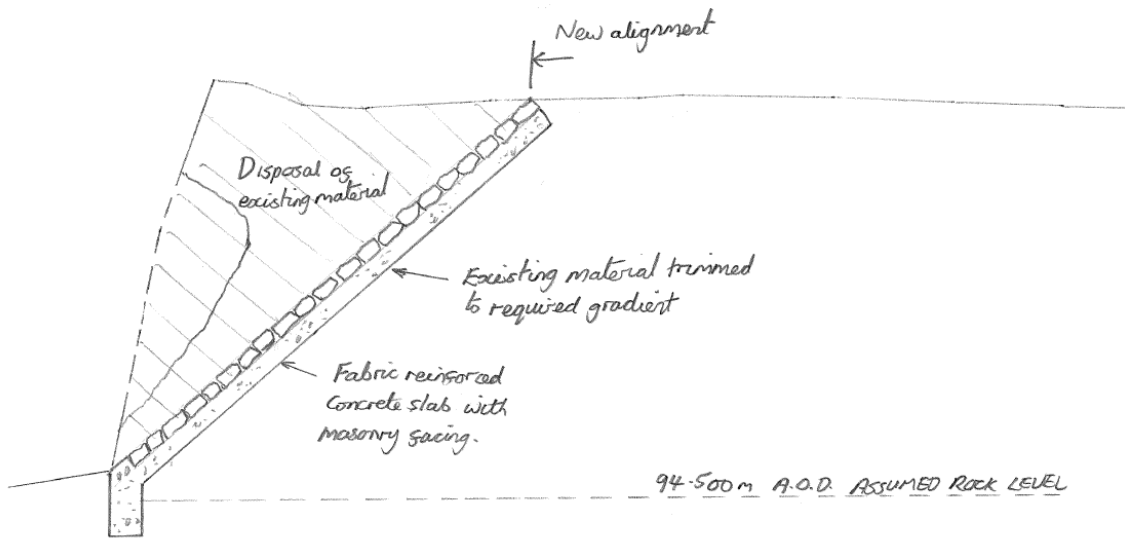 New alignment
Disposal of
existing material
Existing material trimmed
to required gradient
Fabric reinforced
Concrete slab with
masonry facing.
94.500m A.O.D. ASSUMED ROCK LEVEL